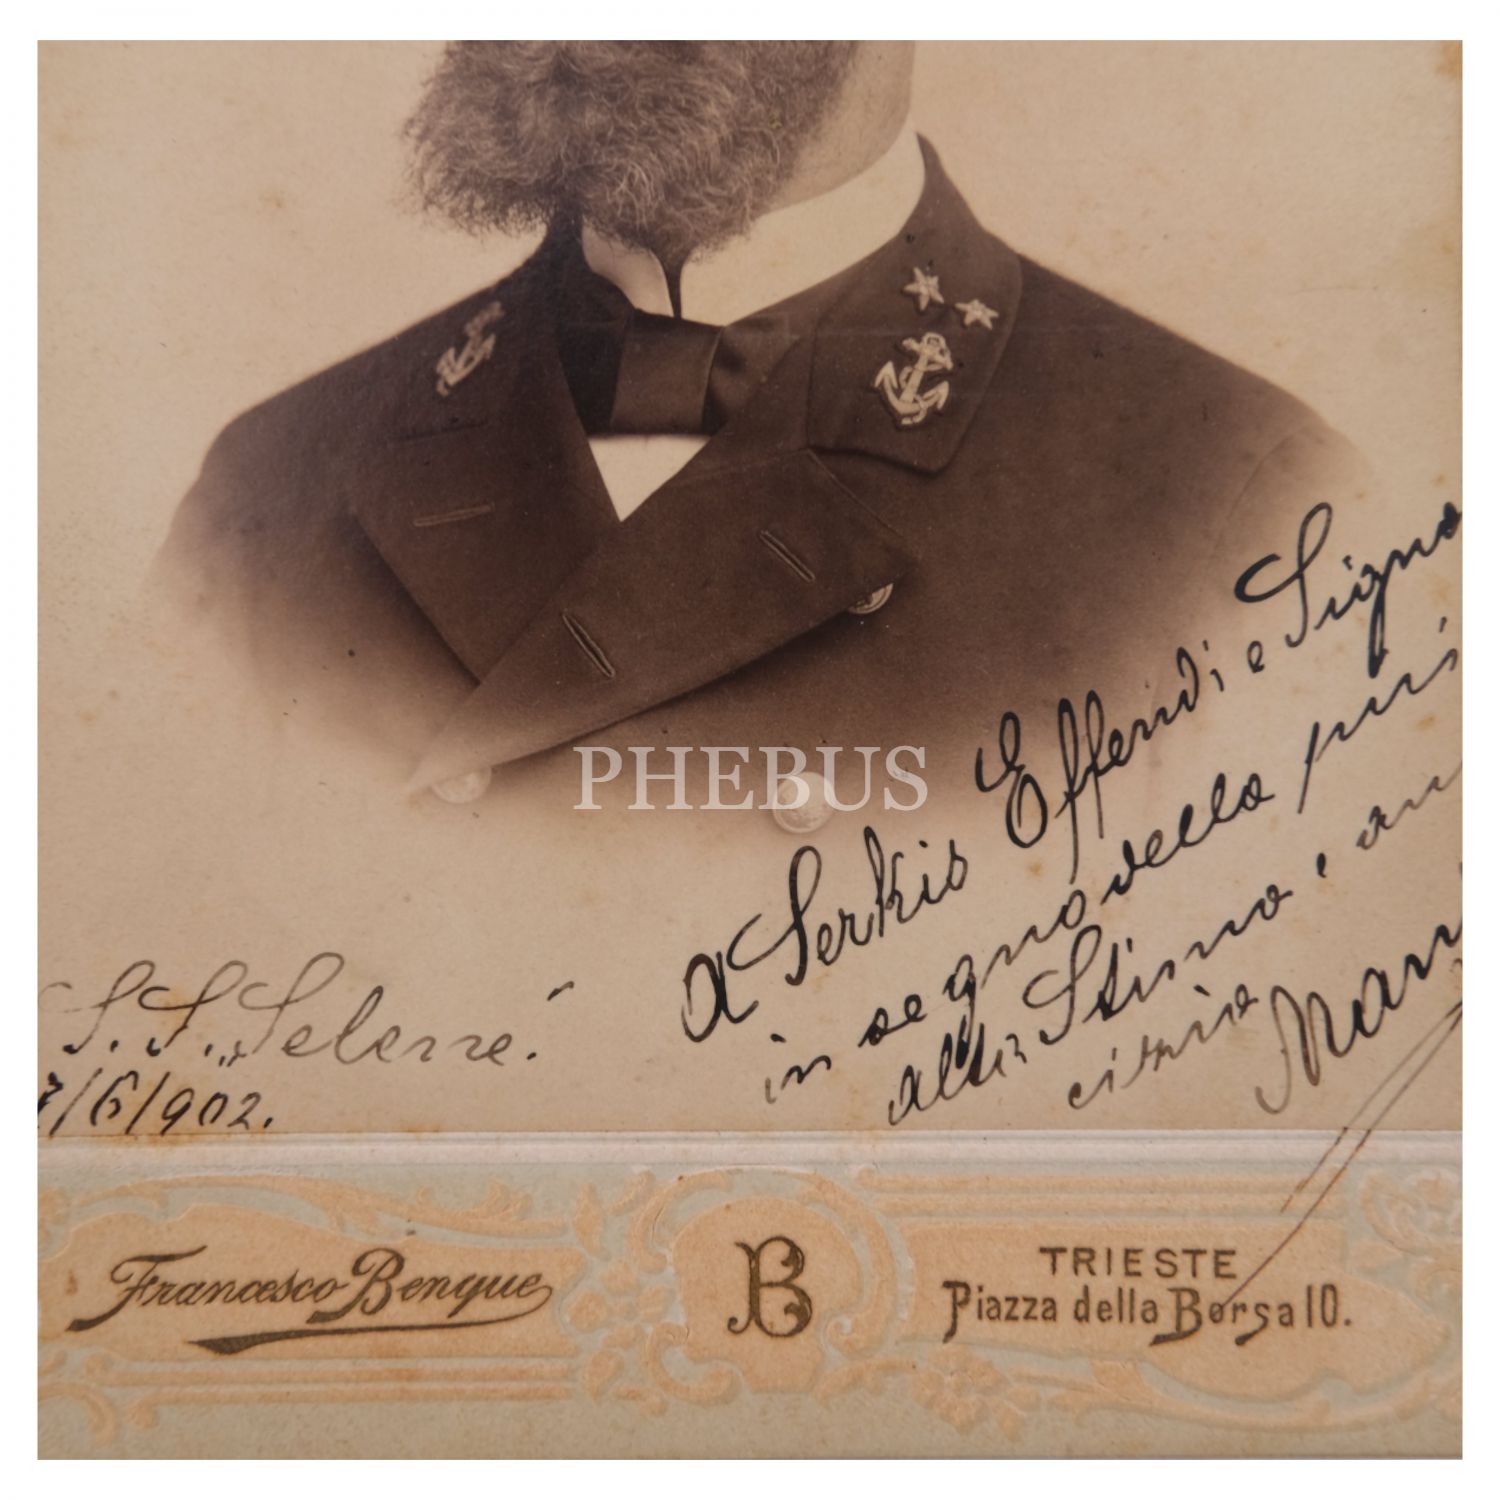 PHEBUS
A Serkis Effendi e Signo
in segno della piu
alta Stima, am
cizia
S. S. "Selene"
7/6/902.
Francesco Benque
B
TRIESTE
Piazza della Borsa 10.